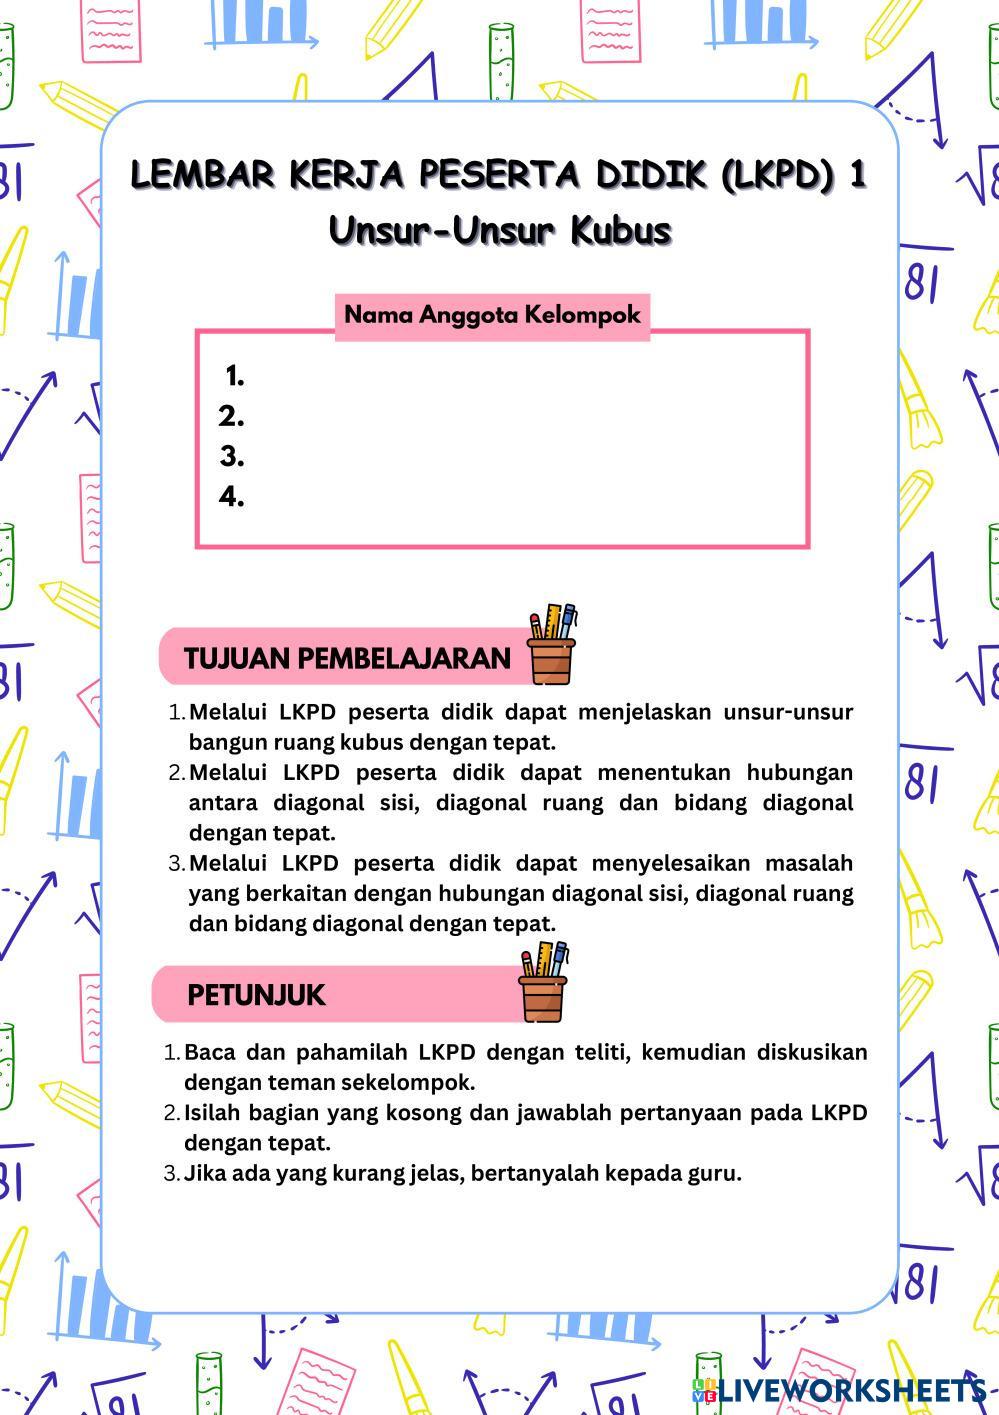 LEMBAR KERJA PESERTA DIDIK (LKPD) 1
Unsur-Unsur Kubus
Nama Anggota Kelompok
1.
2.
3.
4.
TUJUAN PEMBELAJARAN
1. Melalui LKPD peserta didik dapat menjelaskan unsur-unsur
bangun ruang kubus dengan tepat.
2. Melalui LKPD peserta didik dapat menentukan hubungan
antara diagonal sisi, diagonal ruang dan bidang diagonal
dengan tepat.
3. Melalui LKPD peserta didik dapat menyelesaikan masalah
yang berkaitan dengan hubungan diagonal sisi, diagonal ruang
dan bidang diagonal dengan tepat.
PETUNJUK
1. Baca dan pahamilah LKPD dengan teliti, kemudian diskusikan
dengan teman sekelompok.
2. Isilah bagian yang kosong dan jawablah pertanyaan pada LKPD
dengan tepat.
3. Jika ada yang kurang jelas, bertanyalah kepada guru.
LIVE LIVEWORKSHEETS